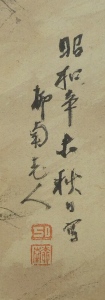 昭和辛未秋日写
柳南老人